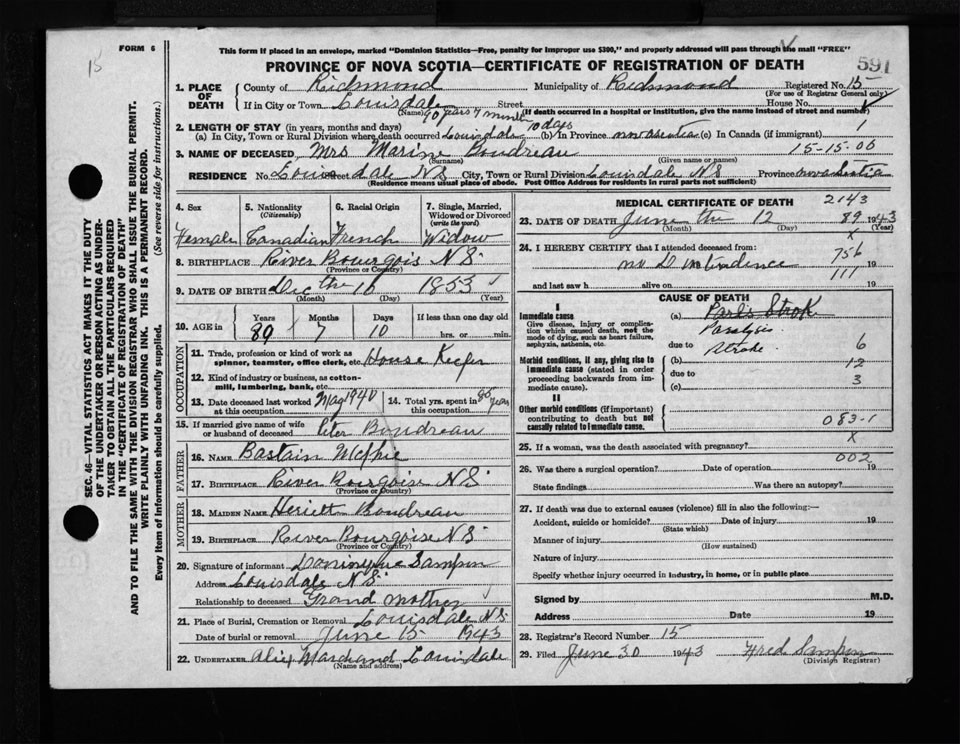 15
FORM 6
This form if placed in an envelope, marked "Dominion Statistics—Free, penalty for improper use $300," and properly addressed will pass through the mail "FREE"
PROVINCE OF NOVA SCOTIA—CERTIFICATE OF REGISTRATION OF DEATH
591
SEC. 46—VITAL STATISTICS ACT MAKES IT THE DUTY
OF THE UNDERTAKER OR PERSON ACTING AS UNDER-
TAKER TO OBTAIN ALL THE PARTICULARS REQUIRED
IN THE "CERTIFICATE OF REGISTRATION OF DEATH"
AND TO FILE THE SAME WITH THE DIVISION REGISTRAR WHO SHALL ISSUE THE BURIAL PERMIT.
WRITE PLAINLY WITH UNFADING INK. THIS IS A PERMANENT RECORD.
Every item of Information should be carefully supplied. (See reverse side for instructions.)
1. PLACE OF DEATH
County of Richmond Municipality of Richmond Registered No. 15
(For use of Registrar General only)
If in City or Town Louisdale Street House No.
(Name) 90 years 7 month (If death occurred in a hospital or institution, give the name instead of street and number)
2. LENGTH OF STAY (in years, months and days) 10 days 1
(a) In City, Town or Rural Division where death occurred Louisdale (b) In Province nova scotia (c) In Canada (if immigrant)
3. NAME OF DECEASED Mrs Marine Boudreau 15-15-06
(Surname) (Given name or names)
RESIDENCE No. Louisdale NS Street City, Town or Rural Division Louisdale NS Province nova scotia
(Residence means usual place of abode. Post Office Address for residents in rural parts not sufficient)
4. Sex
5. Nationality (Citizenship)
6. Racial Origin
7. Single, Married, Widowed or Divorced (write the word)
Female Canadian French Widow
8. BIRTHPLACE River Bourgois NS
(Province or Country)
9. DATE OF BIRTH Dec the 16 1853
(Month) (Day) (Year)
10. AGE in
Years Months Days If less than one day old
89 7 10 hrs. or min.
OCCUPATION
11. Trade, profession or kind of work as spinner, teamster, office clerk, etc. House Keefer
12. Kind of industry or business, as cotton-mill, lumbering, bank, etc.
13. Date deceased last worked at this occupation May 1940
14. Total yrs. spent in this occupation years
15. If married give name of wife or husband of deceased Peter Boudreau
FATHER
16. NAME Bastain Mcphie
17. BIRTHPLACE River Bourgoise NS
(Province or Country)
MOTHER
18. MAIDEN NAME Heriett Boudreau
19. BIRTHPLACE River Bourgoise NS
(Province or Country)
20. Signature of informant Sampson
Address Louisdale NS
Relationship to deceased Grand mother
21. Place of Burial, Cremation or Removal Louisdale NS
Date of burial or removal June 15 1943
22. UNDERTAKER Marchand Louisdale
(Name and address)
MEDICAL CERTIFICATE OF DEATH 2143
23. DATE OF DEATH June the 12 89 1943
(Month) (Day) (Year)
x
24. I HEREBY CERTIFY that I attended deceased from:
no D 756 19
111
and last saw h alive on 19
CAUSE OF DEATH
I
Immediate cause
Give disease, injury or complication which caused death, not the mode of dying, such as heart failure, asphyxia, asthenia, etc.
(a) Strok
Paralysis
due to 6
Morbid conditions, if any, giving rise to immediate cause (stated in order proceeding backwards from immediate cause).
(b) 12
due to 3
(c)
II
Other morbid conditions (if important) contributing to death but not causally related to immediate cause.
083-1
25. If a woman, was the death associated with pregnancy? x
002
26. Was there a surgical operation? Date of operation 19
State findings Was there an autopsy?
27. If death was due to external causes (violence) fill in also the following:—
Accident, suicide or homicide? Date of injury 19
(State which)
Manner of injury
(How sustained)
Nature of injury
Specify whether injury occurred in industry, in home, or in public place
Signed by M.D.
Address Date 19
28. Registrar's Record Number 15
29. Filed June 30 1943 Fred Sampson
(Division Registrar)